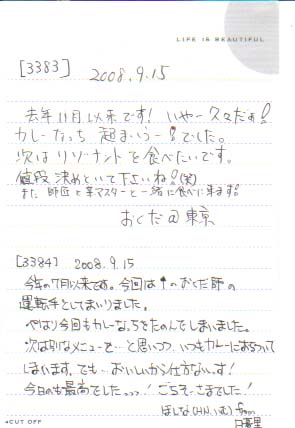 LIFE IS BEAUTIFUL
[3383] 2008.9.15
去年11月以来です!いやー久々だぁ!
カレーなっち 超まいうー!でした。
次はリゾーナントを食べたいです。
値段決めといて下さいね!(笑)
また 師匠と芋マスターと一緒に食べに来ます!
おくだ@東京
[3384] 2008.9.15
今年の7月以来です。今回は↑のおくだ師の
運転手としてまいりました。
やはり今回もカレーなっちをたのんでしまいました。
次は別なメニューを…と思いつつ、いつもカレーに
しまいます。でも…おいしいから仕方ないっす!
今日も最高でした…!ごちそーさまでした!
ほしな(HN.いむ) from
日暮里
CUT OFF